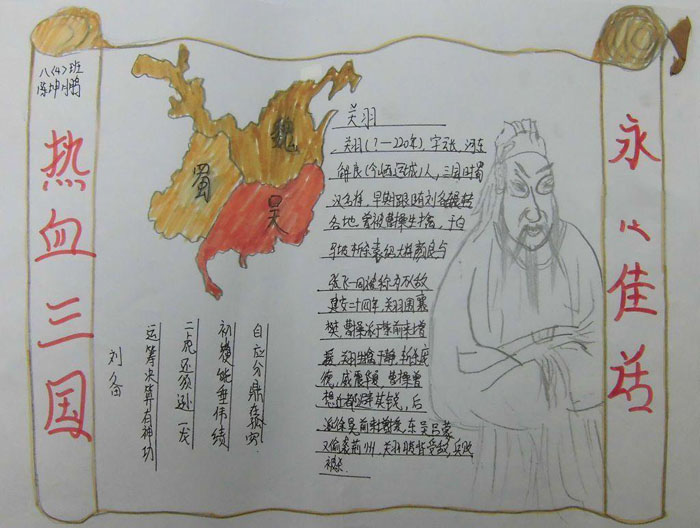 八(4)班
陈坤鹏
热血三国
魏
蜀
吴
关羽
关羽(?—220年),字云长,河东
解良(今山西运城)人,三国时蜀
汉名将,早期跟随刘备辗转
各地,曾被曹操生擒,于白
马坡斩杀袁绍大将颜良与
张飞一同被称为万人敌
建安二十四年,关羽围襄
樊,曹操派于禁前来增
援,关羽生擒于禁,斩杀庞
德,威震华夏,曹操曾
想迁都避其锐,后
派徐晃前来增援,东吴吕蒙
又偷袭荆州,关羽腹背受敌,兵败
被杀.
运筹决算有神功
二虎还须逊一龙
初 能垂伟绩
自应分鼎在孤穷
刘备
永 佳话